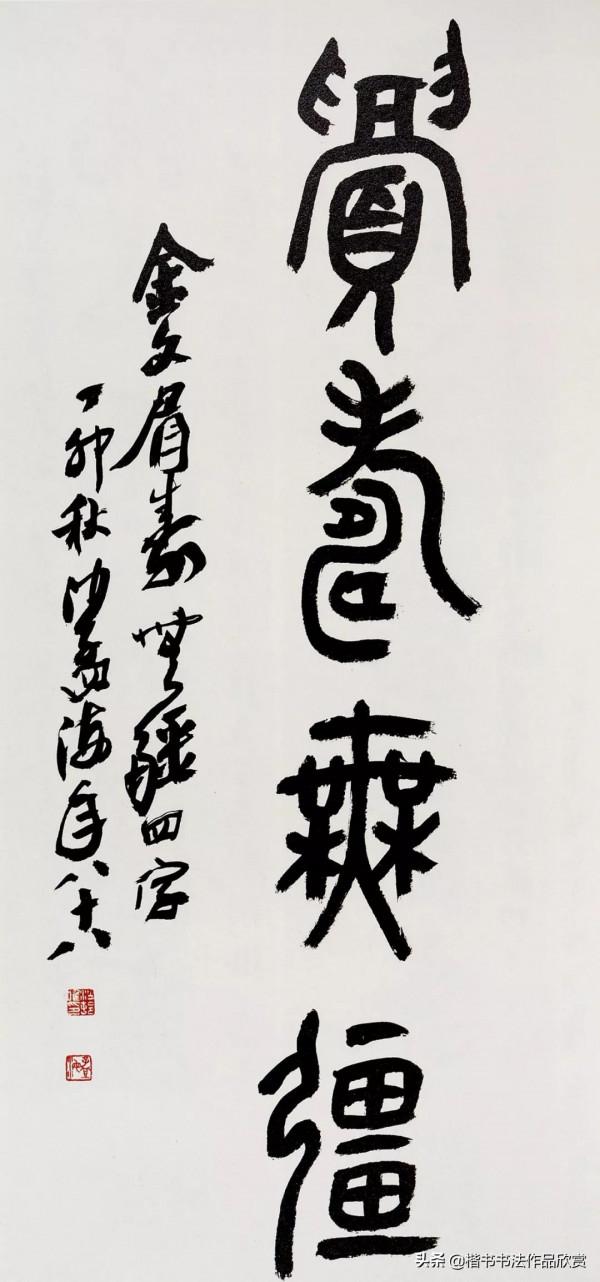 眉壽無疆
金文眉壽無疆四字
丁卯秋沙孟海年八十八
头条 @楷书书法作品欣赏